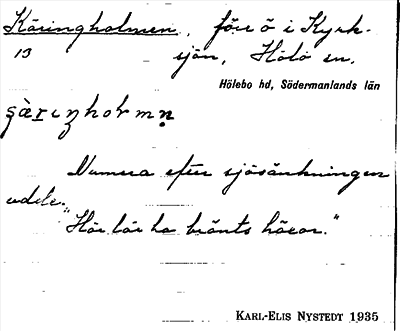 Käringholmen, förr ö i Kyrk-
13 sjön, Hölö sn,
Hölebo hd, Södermanlands län
Numera efter sjösänkningen
udde.
"Här lär ha bränts häxor."
KARL-ELIS NYSTEDT 1935